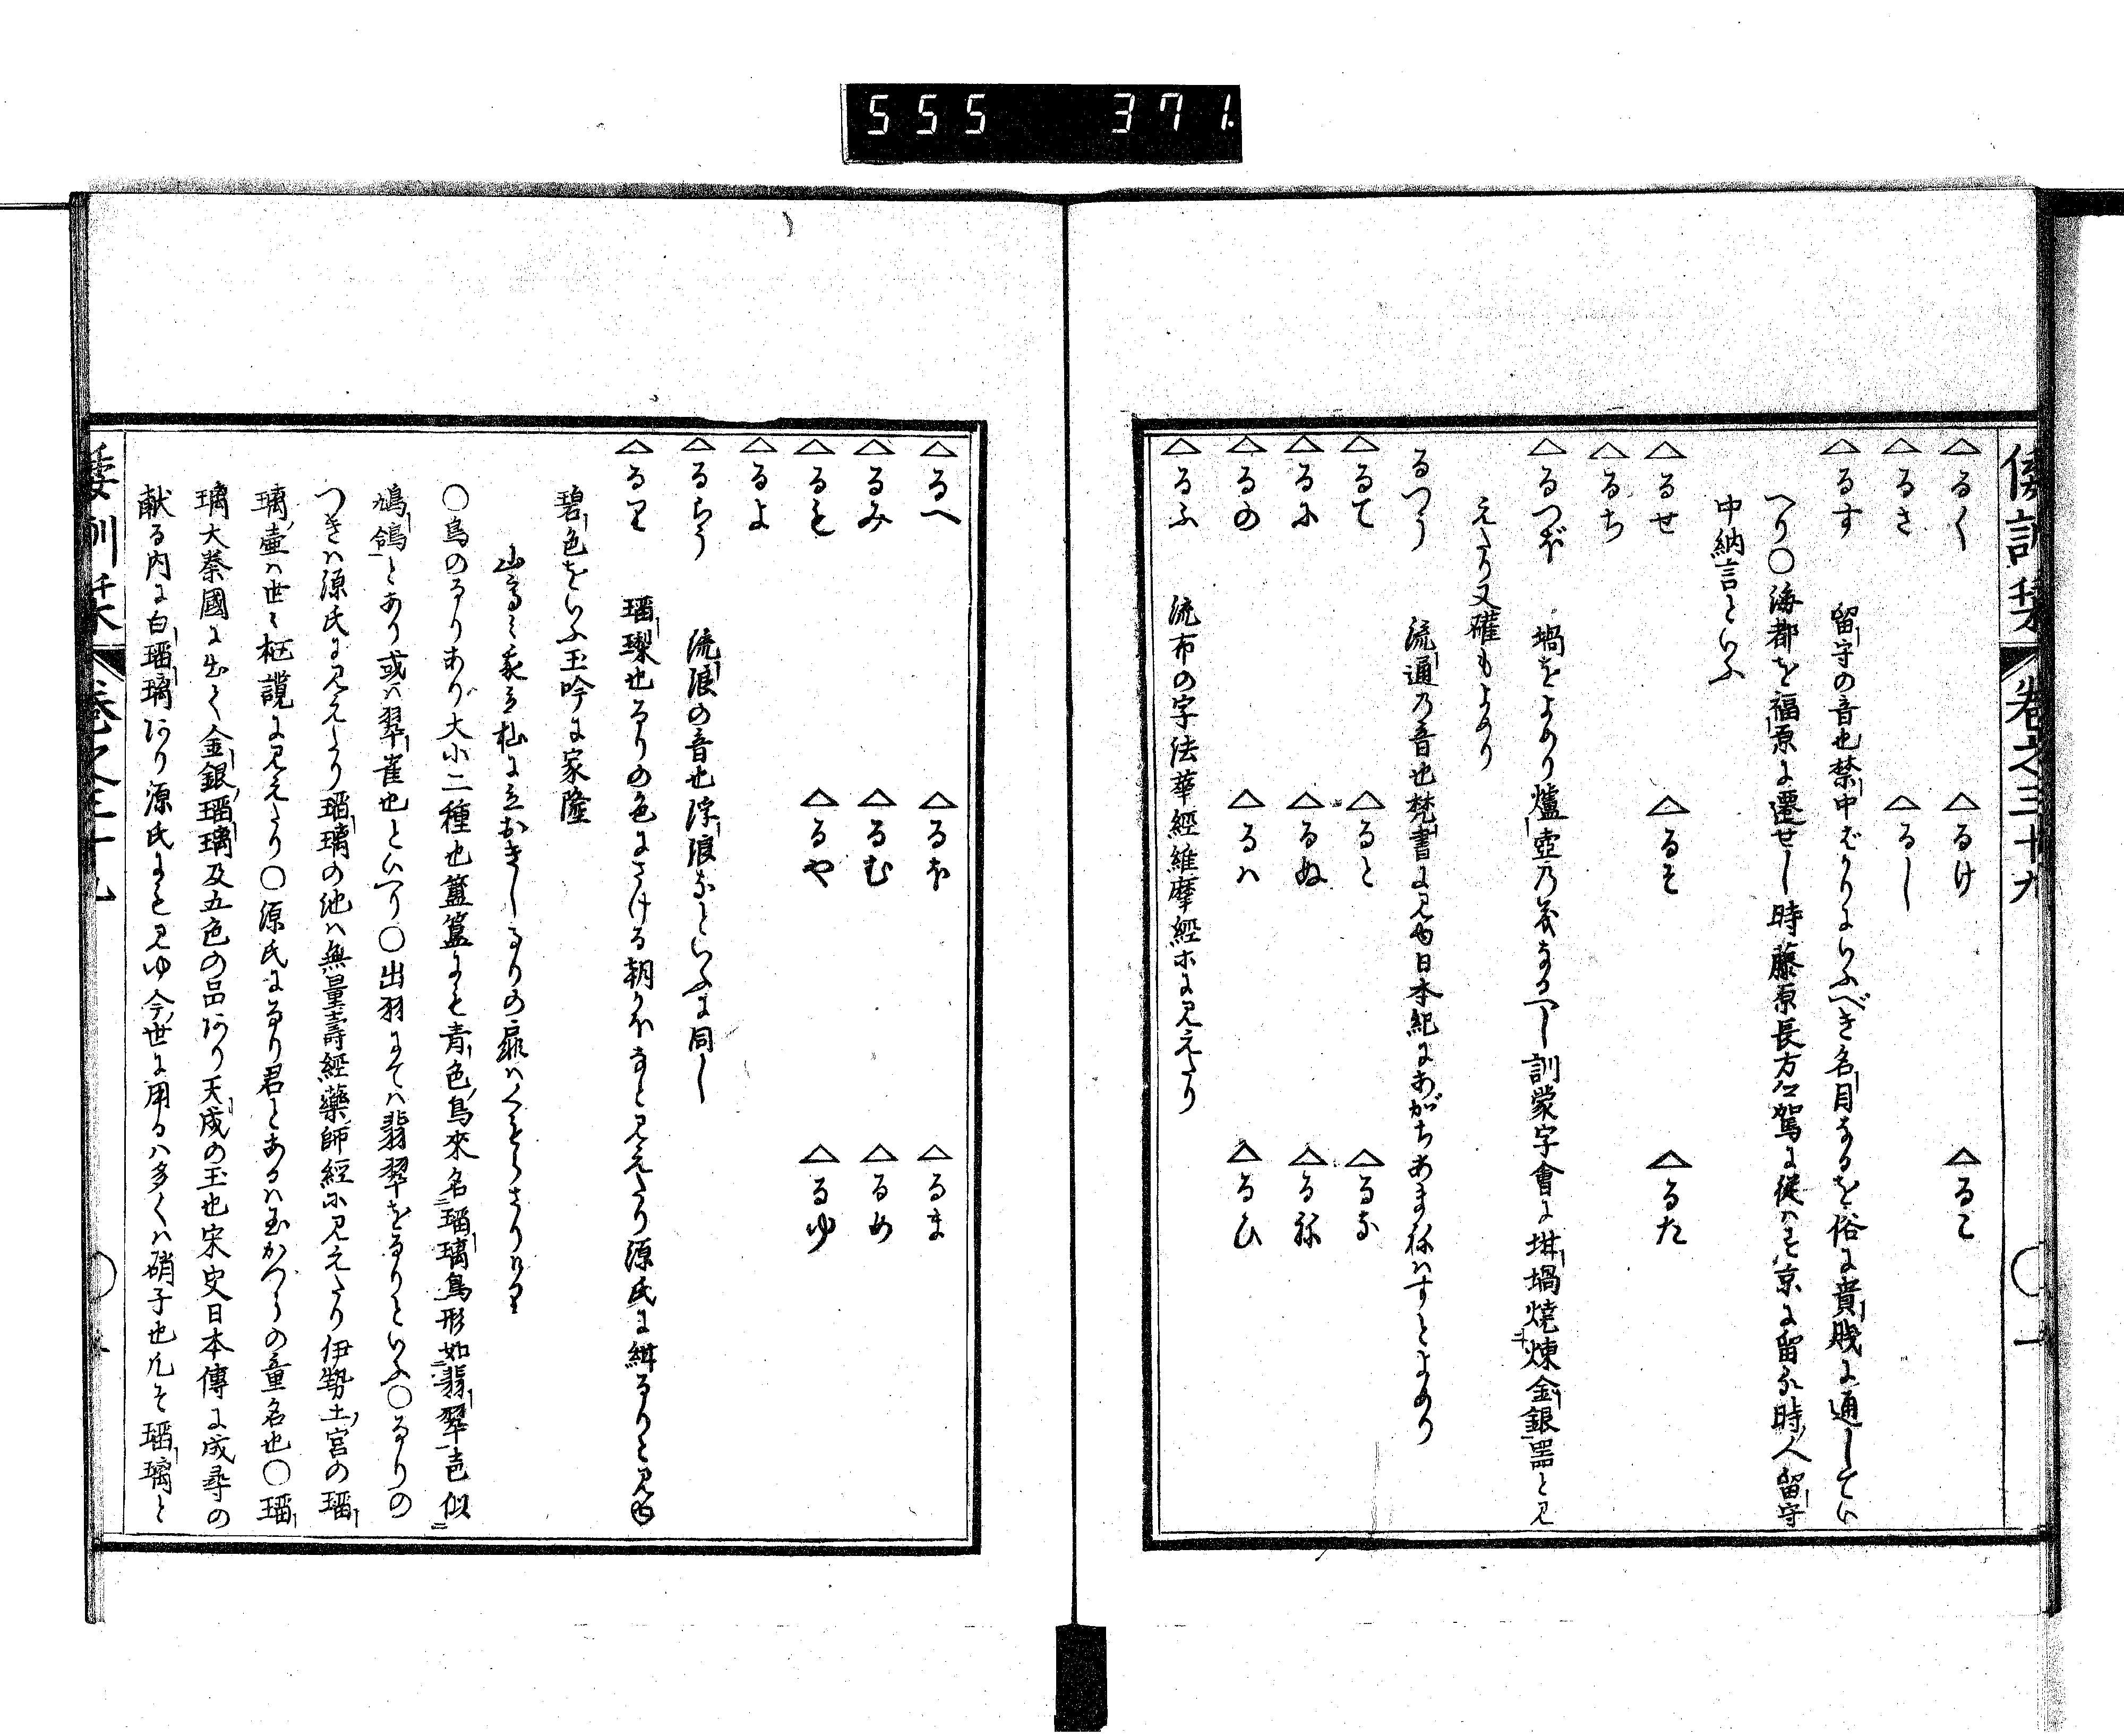 555 371
倭訓栞 巻之三十九 〇一
△るく △るけ △るこ
△るさ △るし
△るす 留守の音也禁中ばかりにいふべき名目なるを俗に貴賤に通してい
へり〇海都を福原に遷せし時藤原長方公駕に従はす京に留る時人留守
中納言といふ
△るせ △るそ △るた
△るち
△るつぼ 堝をよめり爐壺乃義なるへし訓蒙字會に坩堝燒煉金銀器と見
えたり又礶もよめり
るつう 流通乃音也梵書に見ゆ日本紀にあがちあまねはすとよめり
△るて △ると △るな
△るに △るぬ △るね
△るの △るハ △るひ
△るふ 流布の字法華經維摩經ホに見えたり
△るへ △るほ △るま
△るみ △るむ △るめ
△るも △るや △るゆ
△るよ
△るらう 流浪の音也浮浪なといふに同し
△るり 瑠璃也るりの色にさける朝かほなと見えたり源氏に紺るりと見ゆ
碧色をいふ玉吟に家隆
〇鳥のるりあり大小二種也簠簋にも青色鳥來名瑠璃鳥形如翡翠色似
鳩鴿とあり或ハ翠雀也といへり〇出羽にてハ翡翠をるりといふ〇るりの
つきハ源氏に見えたり瑠璃の地ハ無量壽經藥師經ホに見えたり伊勢土宮の瑠
璃壺ハ世に柩讃に見えたり〇源氏にるり君とあるハ玉かつらの童名也〇瑠
璃大秦國に出て金銀瑠璃及五色の品あり天成の玉也宋史日本傳に成尋の
献る内に白瑠璃あり源氏にも見ゆ今世に用るハ多くハ硝子也凡そ瑠璃と
倭訓栞 巻之三十九